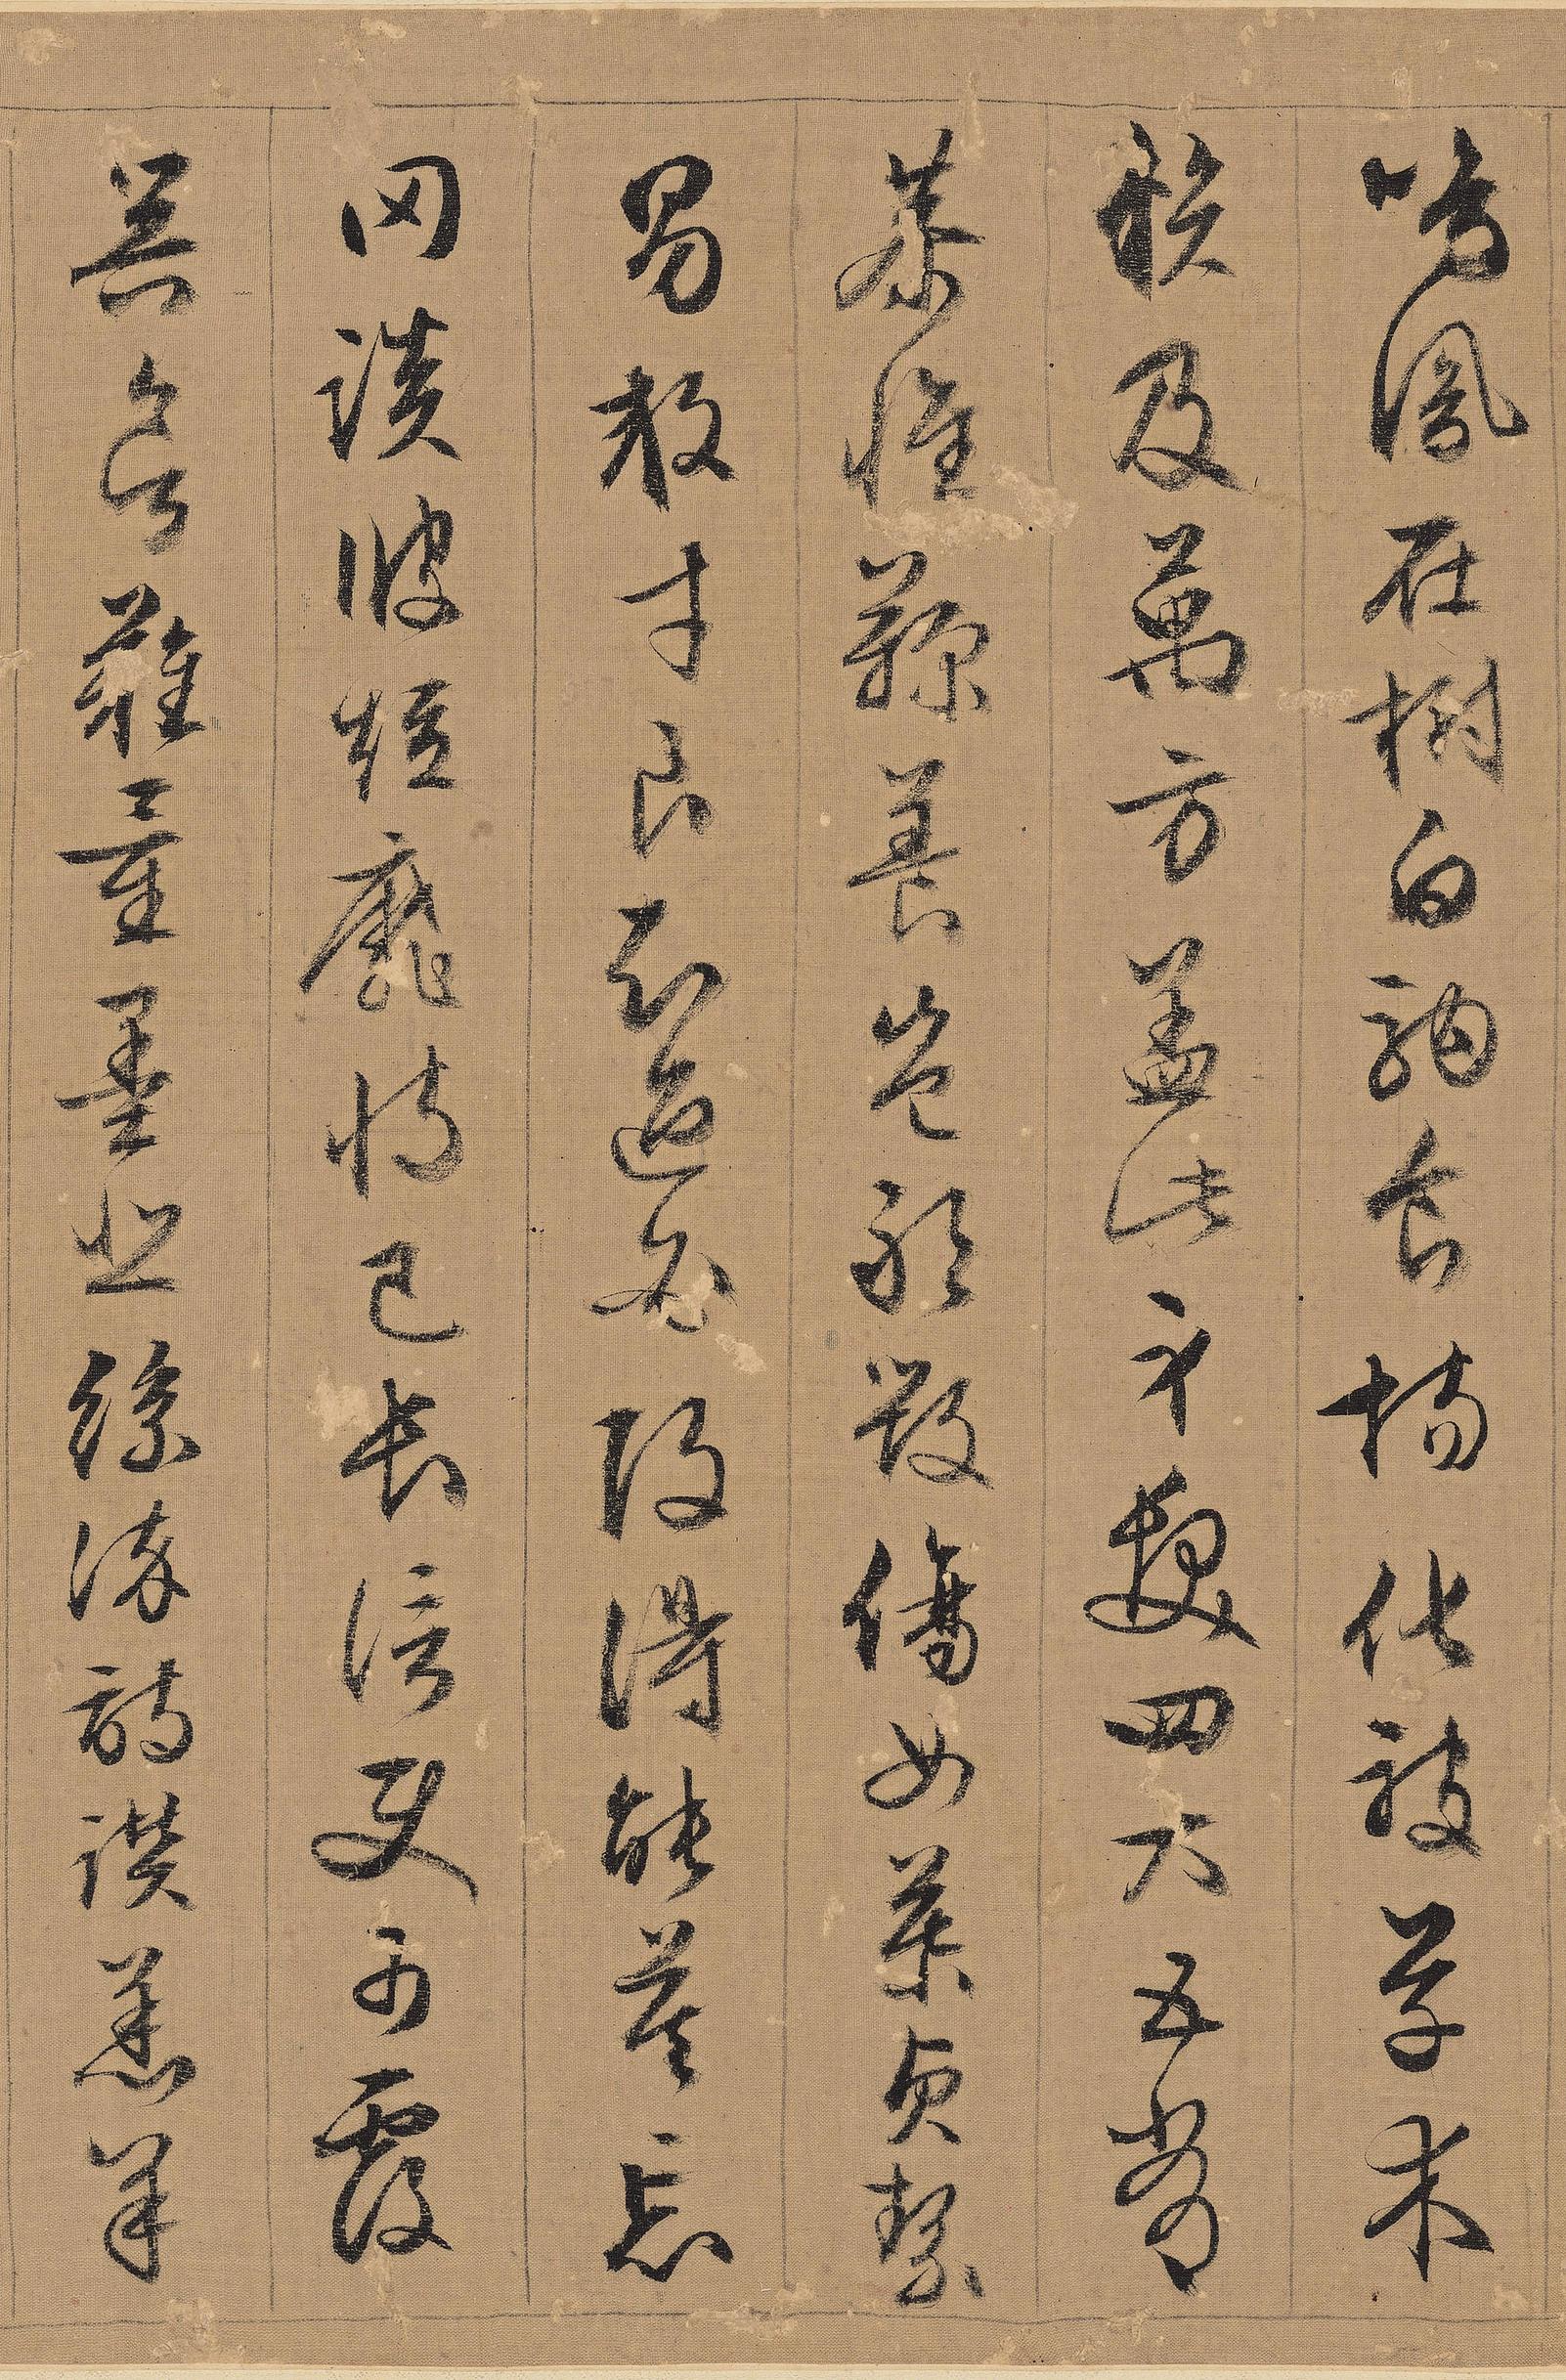 鳴鳳在樹白駒食場化被草木
賴及萬方蓋此身髮四大五常
恭惟鞠養豈敢毀傷女慕貞絜
男效才良知過必改得能莫忘
罔談彼短靡恃己長信使可覆
器欲難量墨悲絲染詩讚羔羊